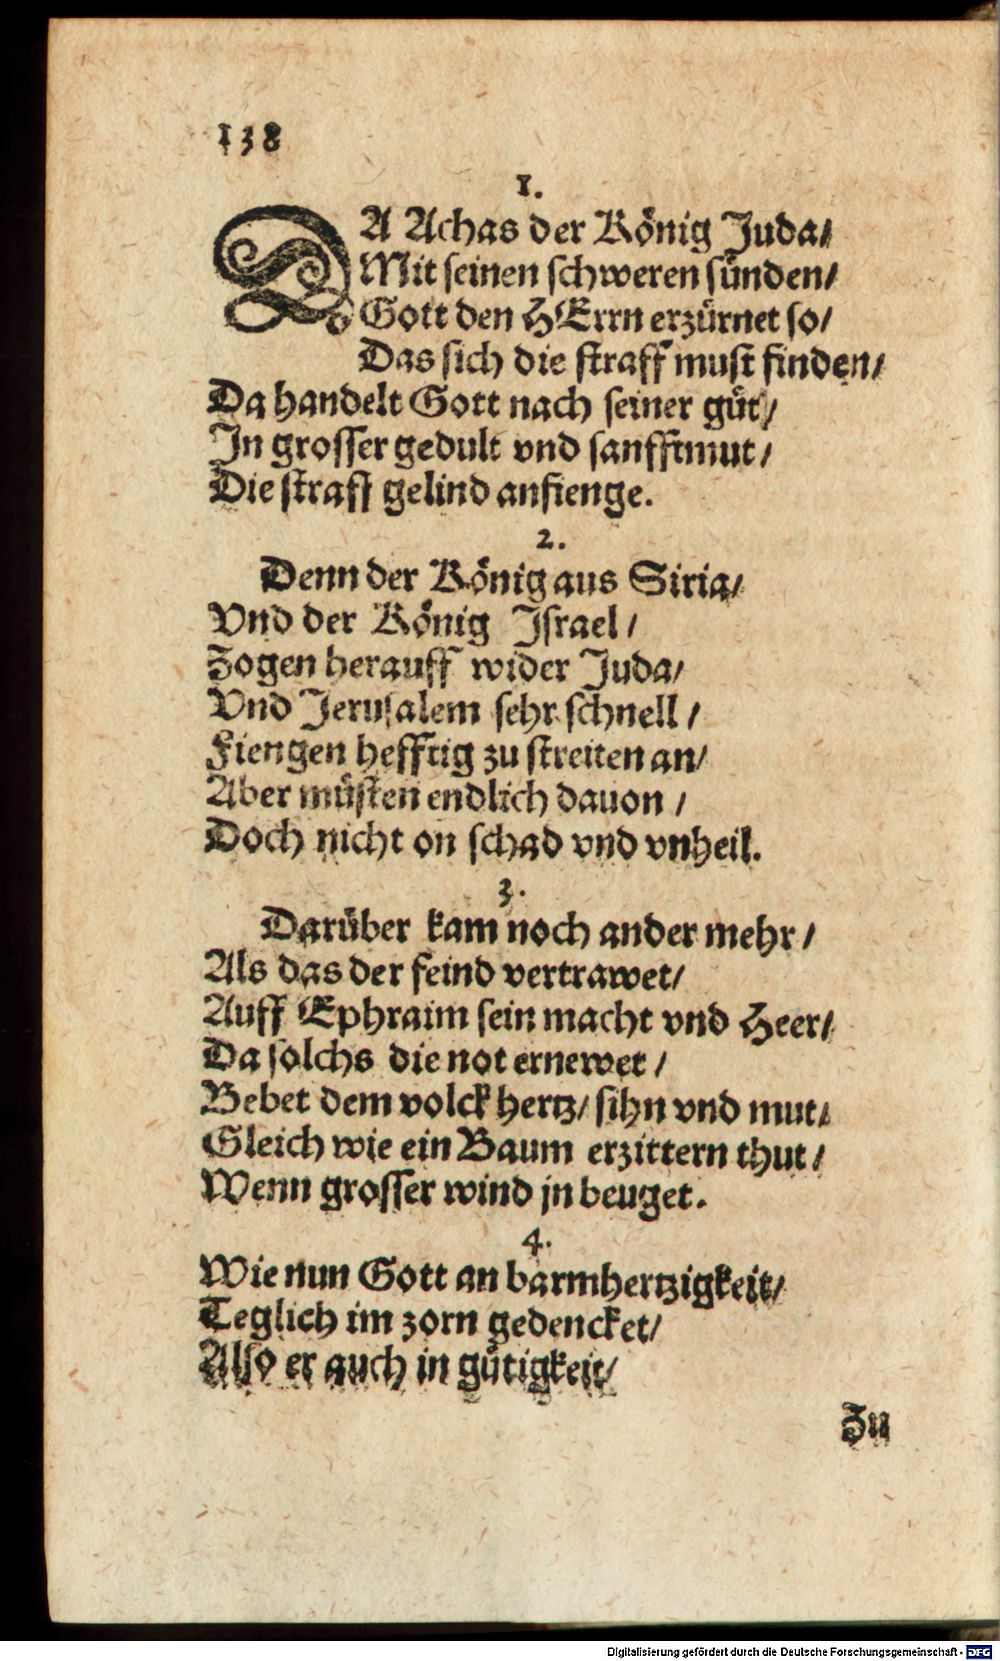 138
1.
DA Achas der König Juda/
Mit seinen schweren sünden/
Gott den HErrn erzürnet so/
Das sich die straff must finden/
Da handelt Gott nach seiner güt/
In grosser gedult vnd sanfftmut/
Die straff gelind anfienge.
2.
Denn der König aus Siria/
Vnd der König Israel/
Zogen herauff wider Juda/
Vnd Jerusalem sehr schnell/
Fiengen hefftig zu streiten an/
Aber müsten endlich dauon/
Doch nicht on schad vnd vnheil.
3.
Darüber kam noch ander mehr/
Als das der feind vertrawet/
Auff Ephraim sein macht vnd Heer/
Da solchs die not ernewet/
Bebet dem volck hertz/ sihn vnd mut/
Gleich wie ein Baum erzittern thut/
Wenn grosser wind jn beuget.
4.
Wie nun Gott an barmhertzigkeit/
Teglich im zorn gedencket/
Also er auch in gütigkeit/
Zu
Digitalisierung gefördert durch die Deutsche Forschungsgemeinschaft - DFG